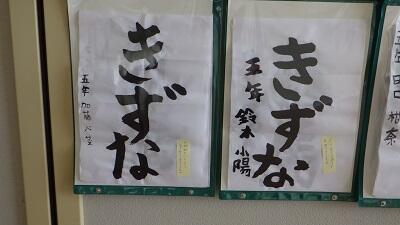 きずな
五年 鈴木 小陽
きずな
五年 加藤
五年 田口 柑奈